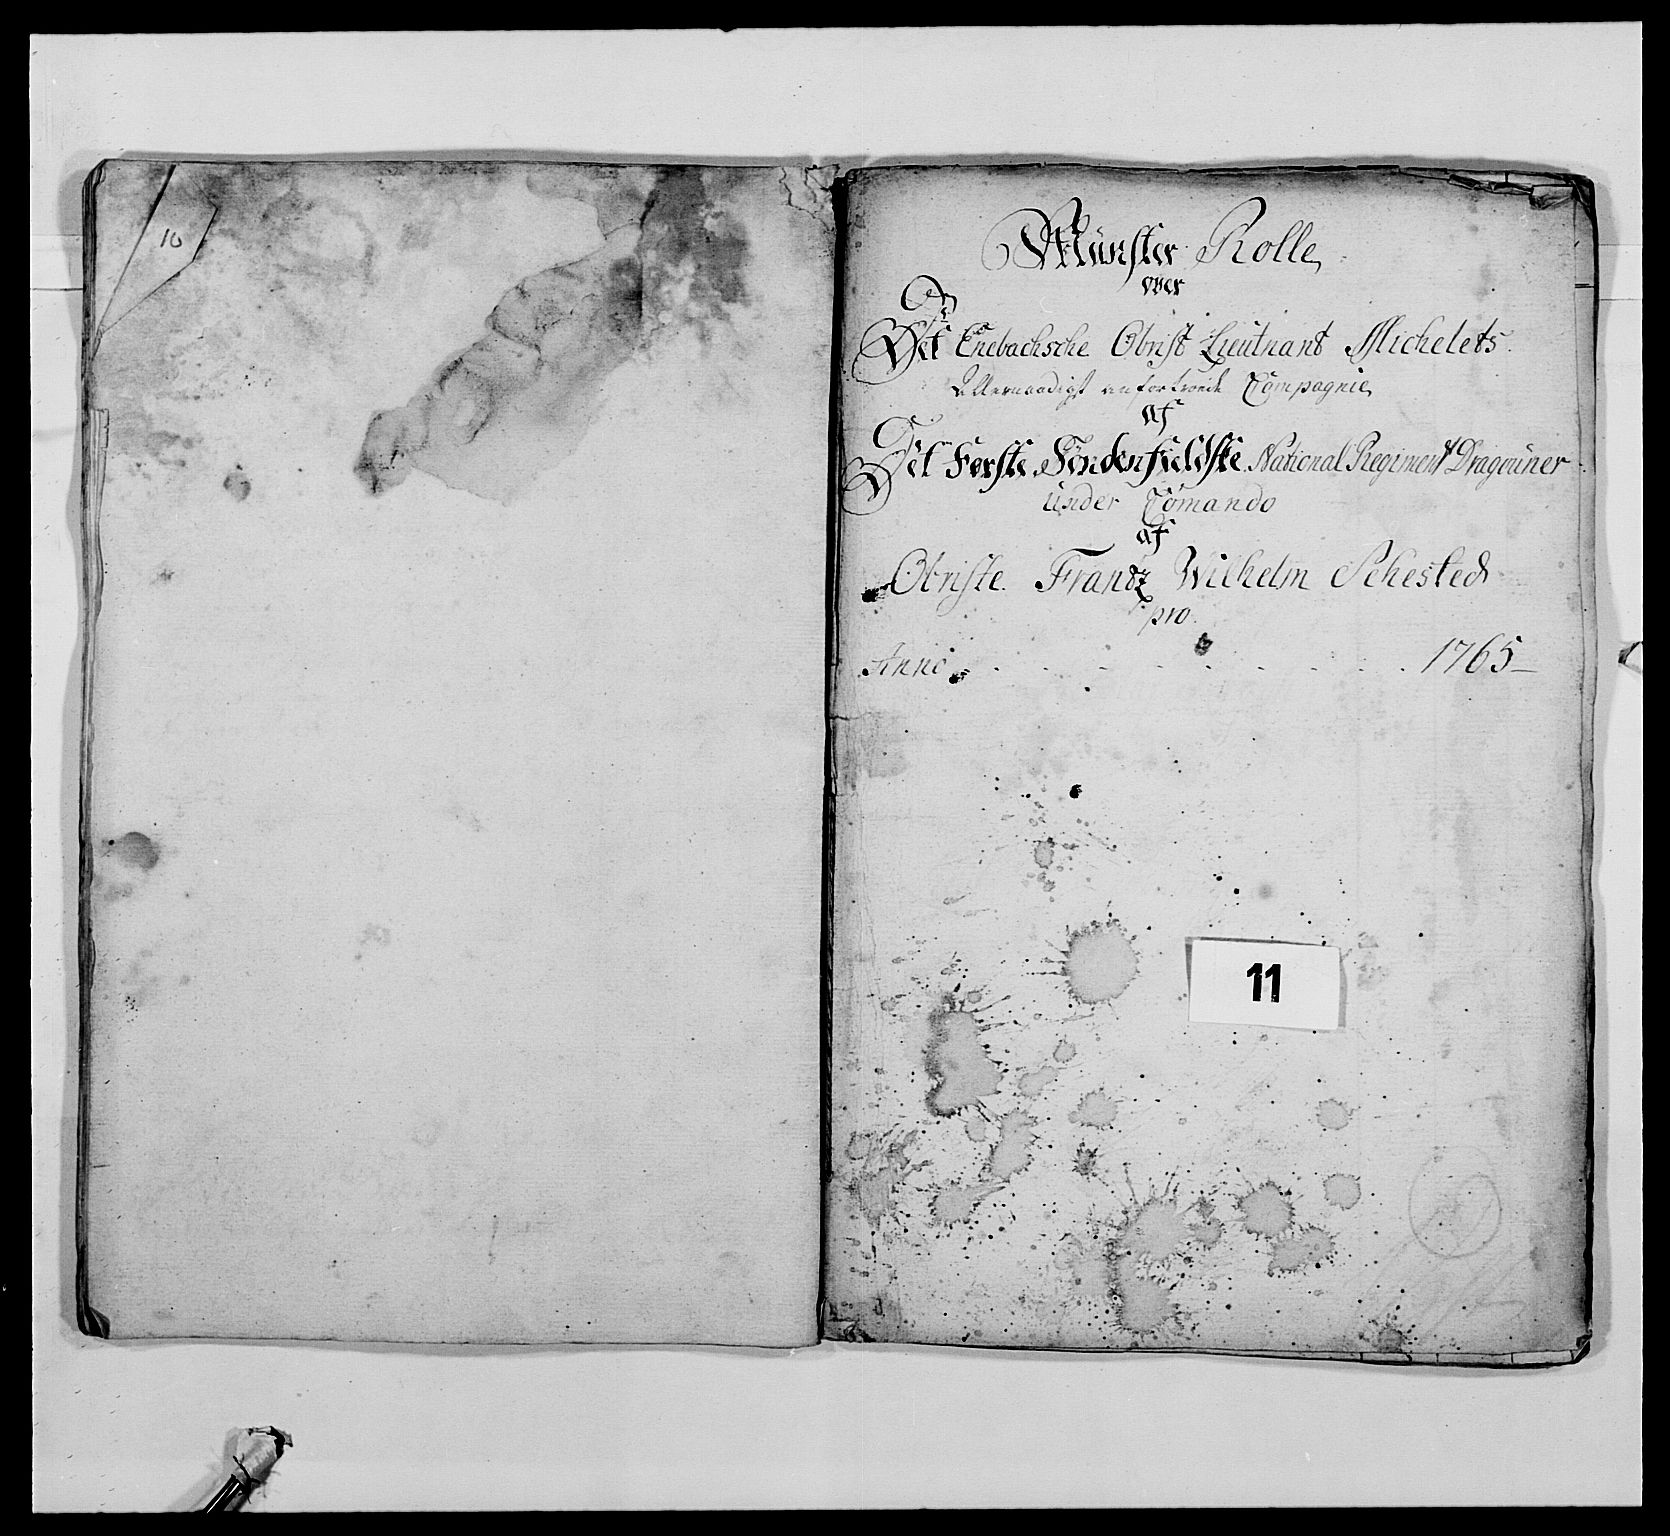 10
Münster Rolle
over
Det Enebachsche Obrist Lieutnant Michelets
Allernaadigst anfortroede Compagnie
af
Det Første Søndenfieldske National Regiment Dragouner
under Comando
af
Obriste Frantz Wilhelm Sehested
pro
Anno 1765
11